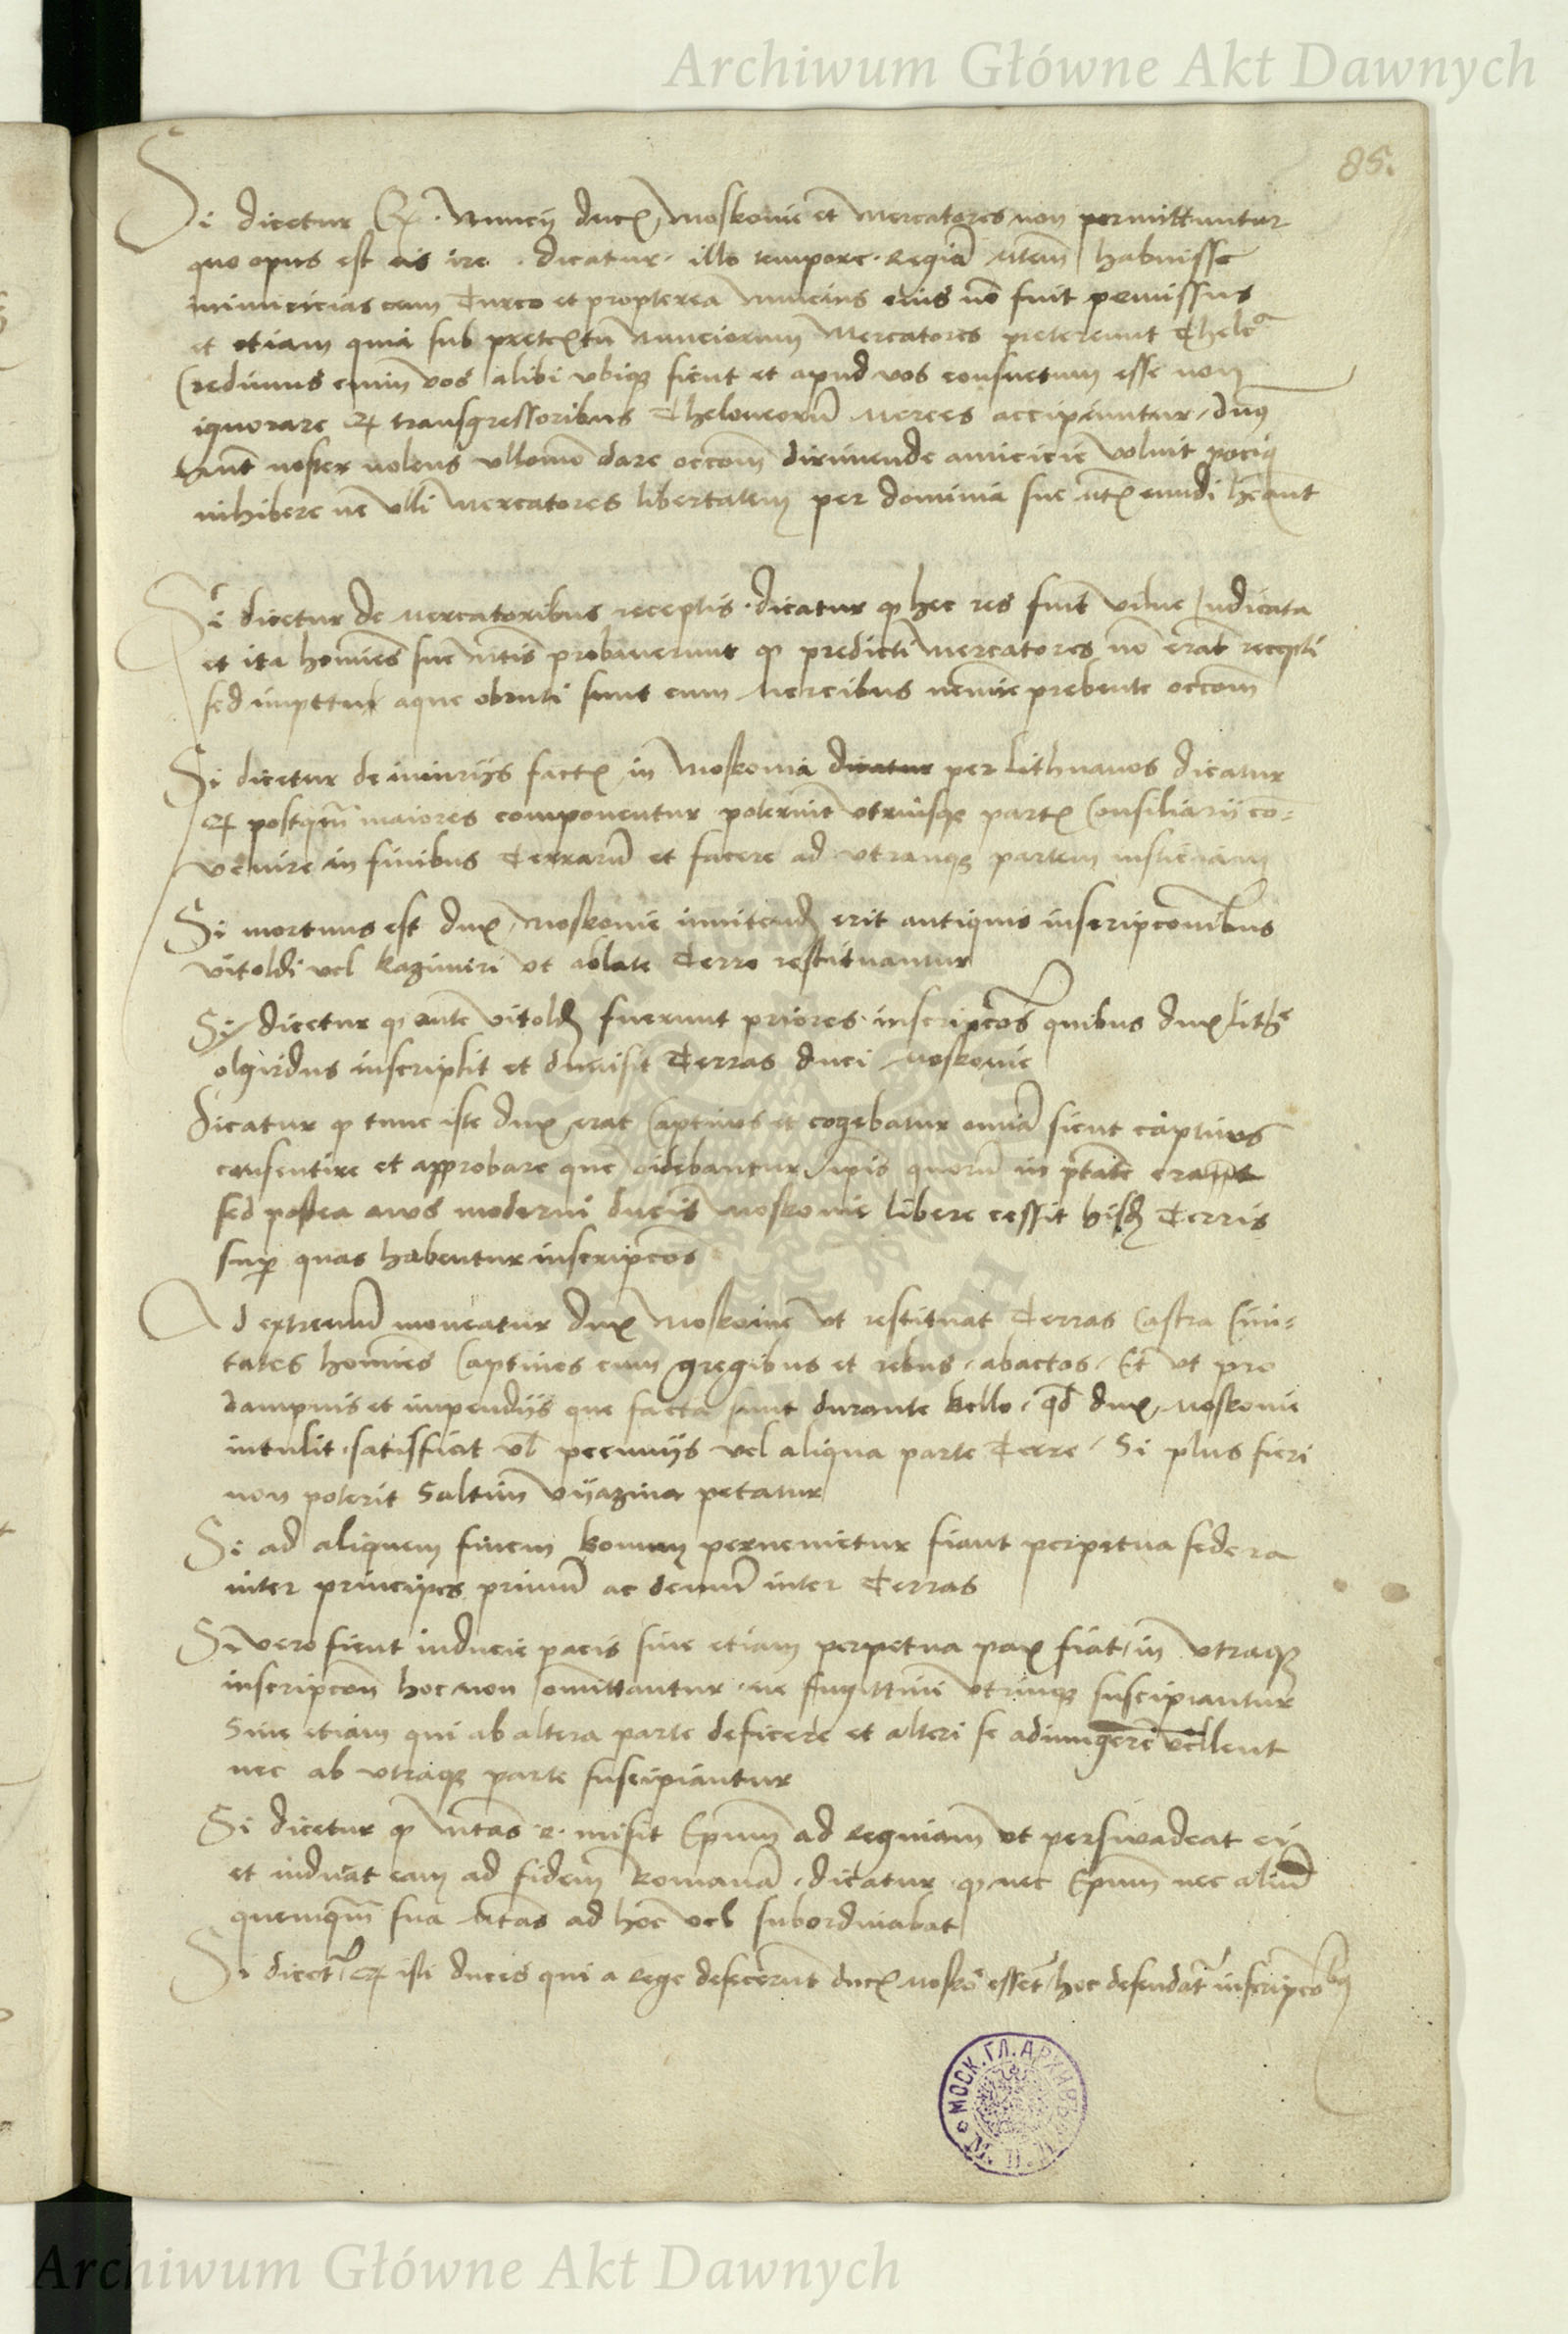 Archiwum Główne Akt Dawnych
85.
Si dicetur Q. Nuncij ducis Moskovie et Mercatores non permittuntur
quo opus est eis ire. dicatur. illo tempore. Regiã Mtem habuisse
inimicicias cum Turco et propterea nuncius eius nõ fuit permissus
et etiam quia sub pretextu nunciorum Mercatores pretereunt Thelo
Credimus enim vos alibi ubique sicut et apud vos consuetum esse non
ignorare q transgressoribus Theloneorũ merces accipiuntur, dnus
noster nolens ullomo dare occom dirimende amicicie voluit pociq
inhibere ne ulli Mercatores libertatem per dominia sue Mtis eundi heant
Si dicetur de mercatoribus receptis. dicatur q hec res fuit vilne Iudicata
et ita homies sue Mtis probaverunt q predicti Mercatores nõ erãt recepti
sed impetu aque obruti sunt cum mercibus nemine prebente occom
Si dicetur de iniurijs factis in Moskovia dicatur per Lithuanos dicatur
q postqm maiores componentur poterint utriusque partis Consiliarij co-
venire in finibus Terrarũ et facere ad utranque partem iusticiam
Si mortuus est dux Moskovie innitend erit antiquis inscripcombus
vitoldi vel kazimiri ut ablate Terre restituantur
Si dicetur q ante vitold fuerunt priores inscripcões quibus dux Lith
olgirdus inscripsit et dimisit Terras duci Moskovie
Dicatur q tunc iste dux erat Captivus et cogebatur omia sicut captivus
consentire et approbare que videbantur ipis quorũ in ptate erant
sed postea avus moderni ducis Moskovie libere cessit hisd Terris
sup quas habentur inscripcões
Ad extremũ moneatur dux Moskovie ut restituat Terras Castra Civi-
tates homies Captivos cum gregibus et rebus abactos. Et ut pro
dampnis et impendijs que facta sunt durante bello. qd dux Moskovie
intulit. satisfiat vl pecunijs vel aliqua parte Terre. Si plus fieri
non poterit Saltim vyazma petatur
Si ad aliquem finem bonum pervenietur fiant perpetua federa
inter principes primũ ac demũ inter Terras
Si vero fient inducie pacis sive etiam perpetua pax fiat, in utraque
inscripcom hoc non omittantur. ne fugittivi utrinque suscipiantur
Sive etiam qui ab altera parte deficere et alteri se adiungere vellent
nec ab utraque parte suscipiantur
Si dicetur q Mtas R. misit Epum ad Reginam ut persuadeat ei
et inducat eam ad fidem Romanã. dicatur. q nec Epum nec aliũ
quemquam sua Mtas ad hoc vel subordinabat
Si dicetr q isti duces qui a Rege defecerũt ducis Mosko essẽt hoc defendatr inscripcõbus
МОСК. ГЛ. АРХИВЪ
Archiwum Główne Akt Dawnych